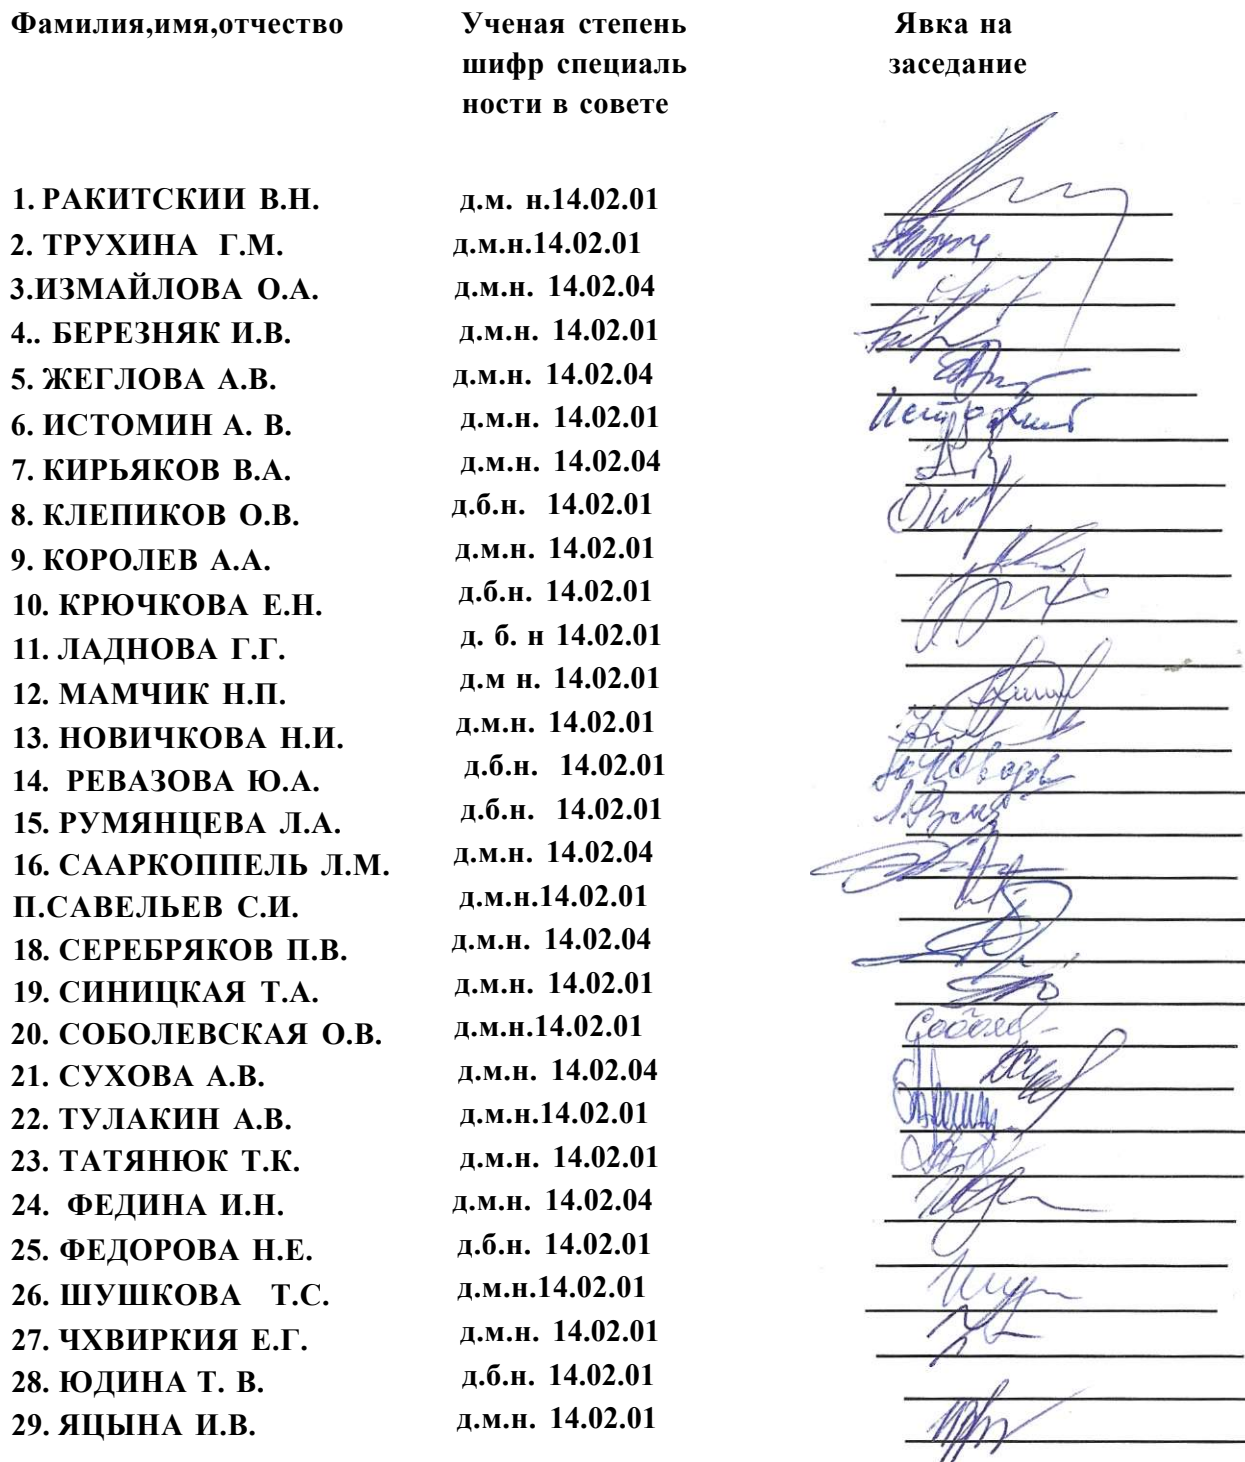 Фамилия,имя,отчество Ученая степень Явка на
шифр специаль заседание
ности в совете
1. РАКИТСКИИ В.Н. д.м. н.14.02.01
2. ТРУХИНА Г.М. д.м.н.14.02.01
3.ИЗМАЙЛОВА О.А. д.м.н. 14.02.04
4.. БЕРЕЗНЯК И.В. д.м.н. 14.02.01
5. ЖЕГЛОВА А.В. д.м.н. 14.02.04
6. ИСТОМИН А. В. д.м.н. 14.02.01
7. КИРЬЯКОВ В.А. д.м.н. 14.02.04
8. КЛЕПИКОВ О.В. д.б.н. 14.02.01
9. КОРОЛЕВ А.А. д.м.н. 14.02.01
10. КРЮЧКОВА Е.Н. д.б.н. 14.02.01
11. ЛАДНОВА Г.Г. д. б. н 14.02.01
12. МАМЧИК Н.П. д.м н. 14.02.01
13. НОВИЧКОВА Н.И. д.м.н. 14.02.01
14. РЕВАЗОВА Ю.А. д.б.н. 14.02.01
15. РУМЯНЦЕВА Л.А. д.б.н. 14.02.01
16. СААРКОППЕЛЬ Л.М. д.м.н. 14.02.04
П.САВЕЛЬЕВ С.И. д.м.н.14.02.01
18. СЕРЕБРЯКОВ П.В. д.м.н. 14.02.04
19. СИНИЦКАЯ Т.А. д.м.н. 14.02.01
20. СОБОЛЕВСКАЯ О.В. д.м.н.14.02.01
21. СУХОВА А.В. д.м.н. 14.02.04
22. ТУЛАКИН А.В. д.м.н.14.02.01
23. ТАТЯНЮК Т.К. д.м.н. 14.02.01
24. ФЕДИНА И.Н. д.м.н. 14.02.04
25. ФЕДОРОВА Н.Е. д.б.н. 14.02.01
26. ШУШКОВА Т.С. д.м.н.14.02.01
27. ЧХВИРКИЯ Е.Г. д.м.н. 14.02.01
28. ЮДИНА Т. В. д.б.н. 14.02.01
29. ЯЦЫНА И.В. д.м.н. 14.02.01